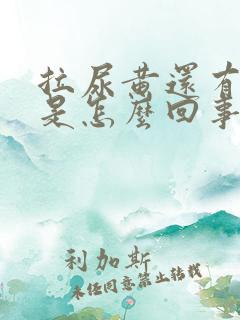 拉尿黃還有
是怎麼回事
利加斯
未经同意禁止转载